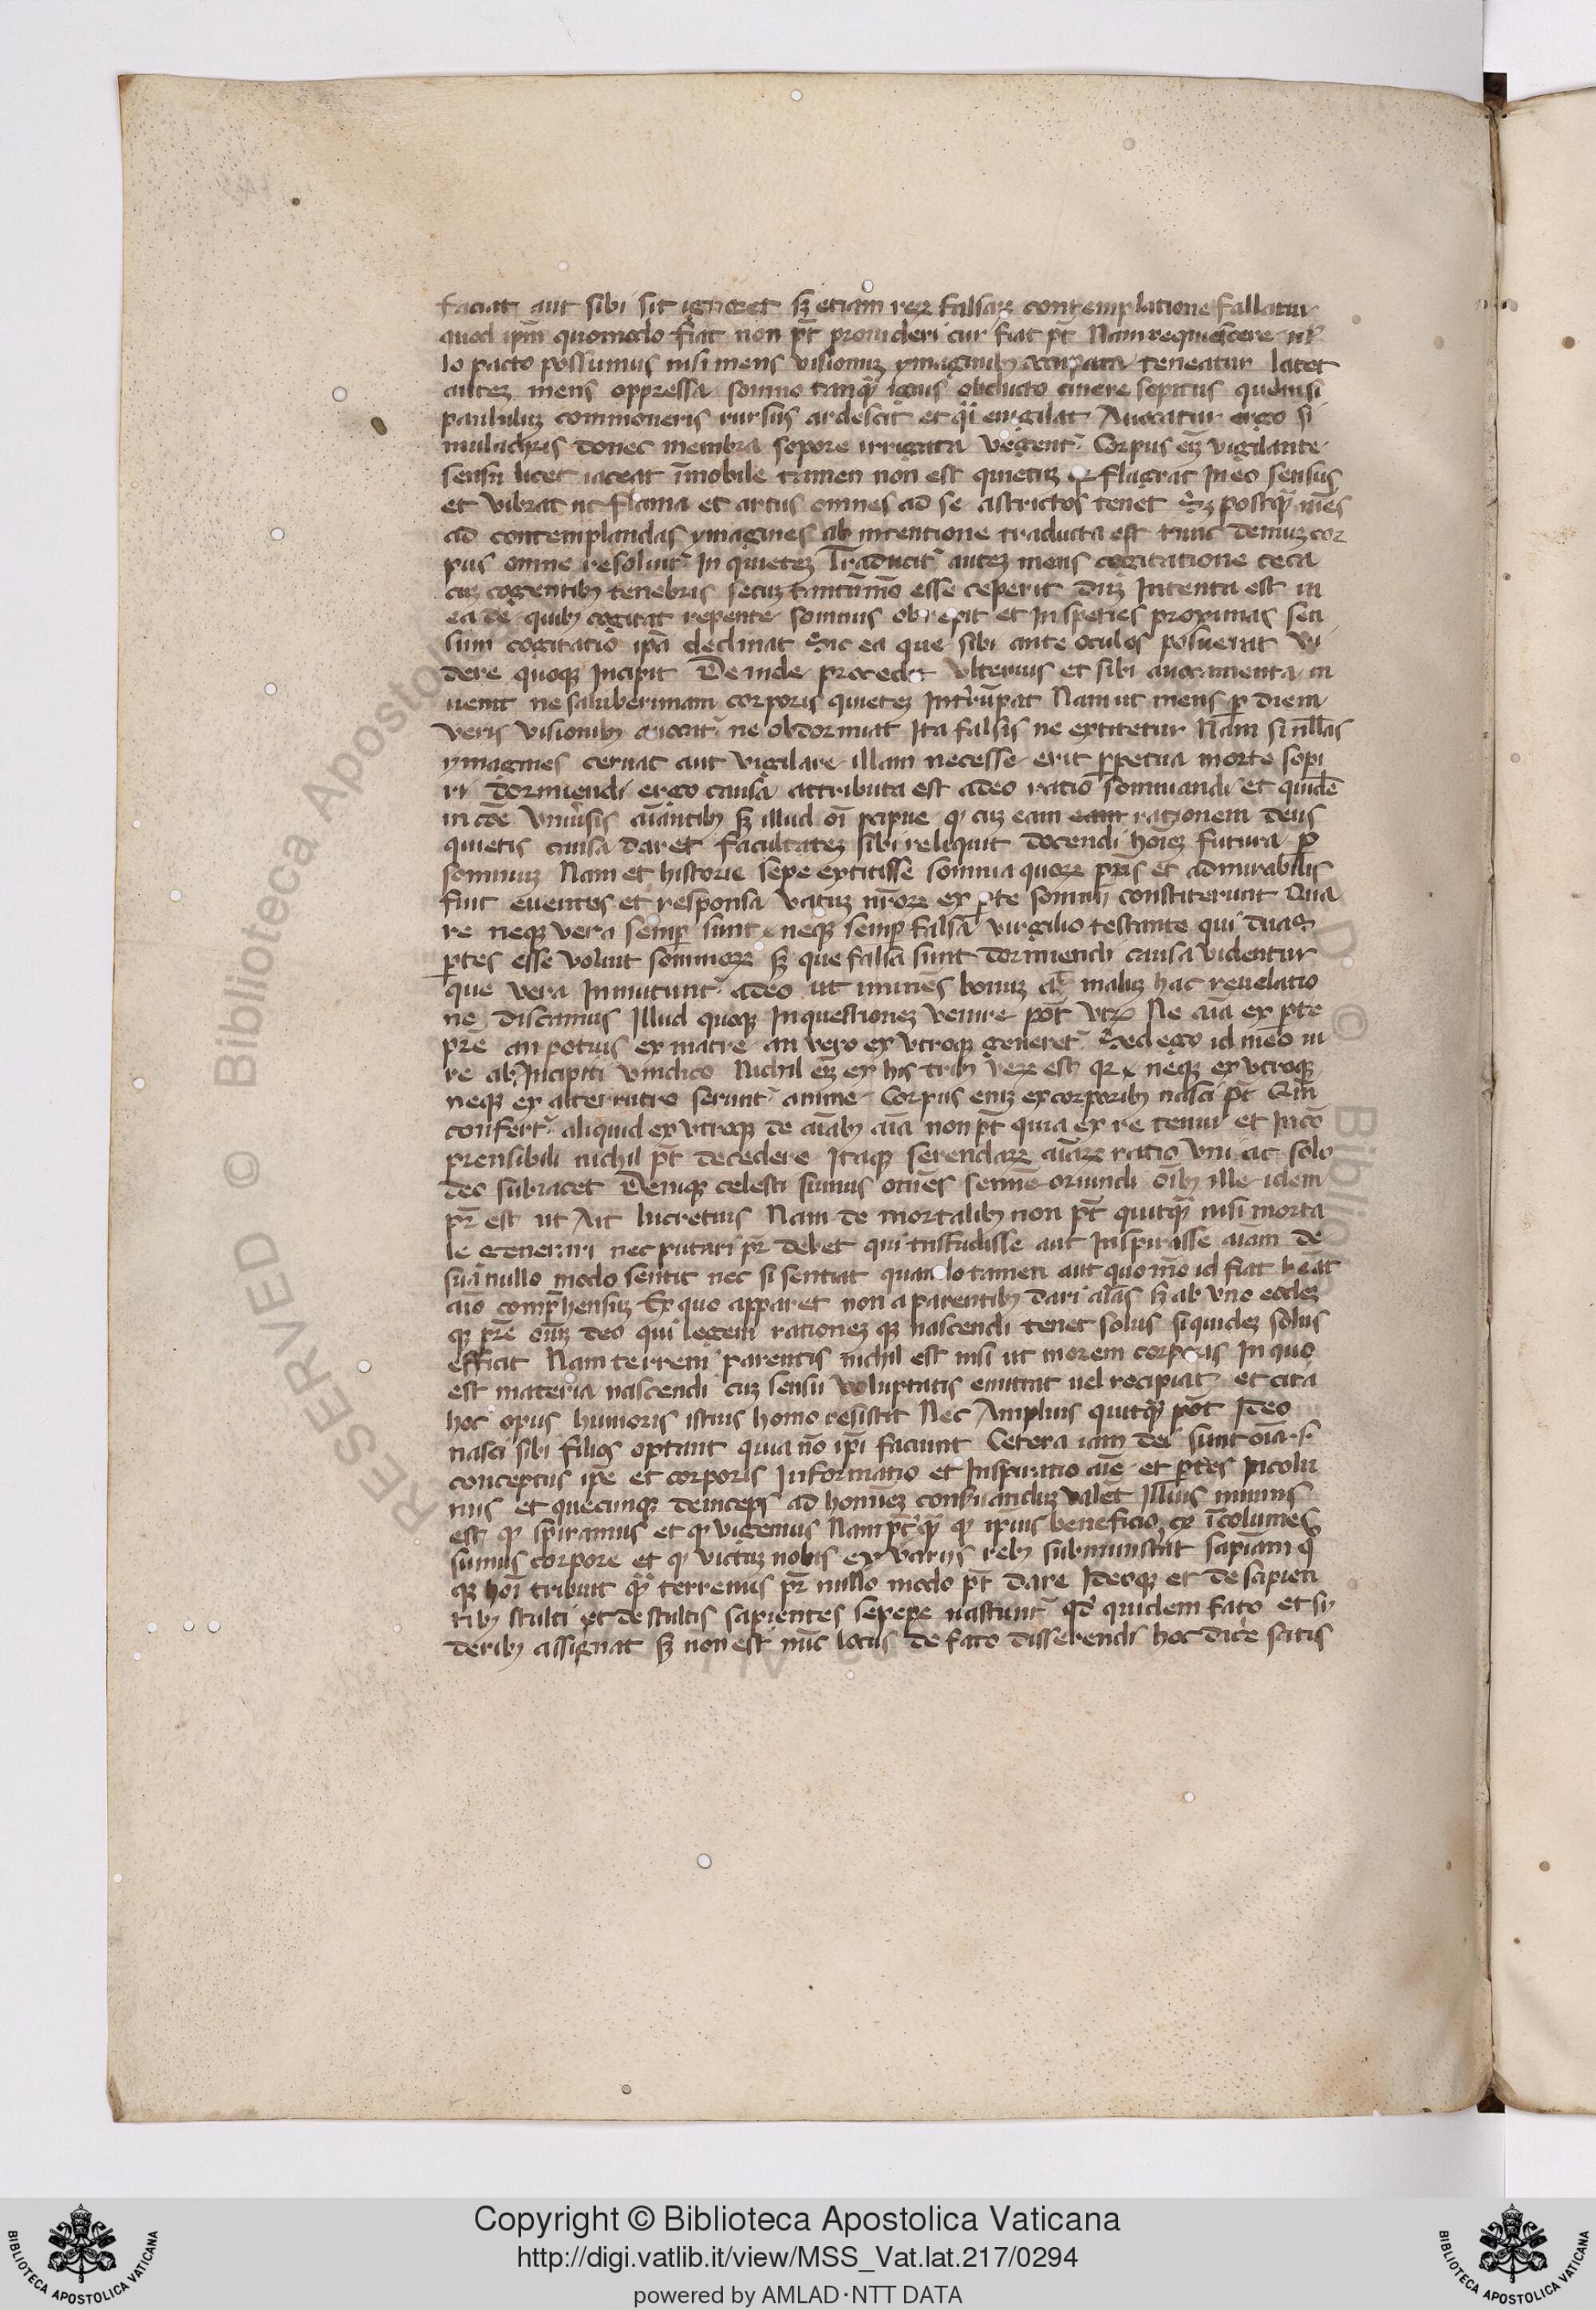 faciat aut sibi sit ignoret sꝫ etiam reꝝ falsaꝝ contemplatione fallatur
quod ip̄m quomodo fiat non pt̄ prouideri cur fiat pt̄ Nam requiescere nl̄
lo pacto possumus nisi mens visionuꝫ ymaginibꝫ occupata teneatur latet
auteꝫ mens oppressa somno tanqͣ̄ ignis obducto cinere sopitus quem si
paululuꝫ commoueris rursus ardescit et qͣi euigilat Auocatur ergo si
mulachris donec membra sopore irrigata vegent᷑ Corpus eīꝫ vigilante
sensu licet iaceat īmobile tamen non est quietuꝫ qꝛ flagrat In eo sensus
et vibrat ut flama et artus omnes ad se astrictos tenet Sꝫ postqͣ̄ mēs
ad contemplandas ymagines ab intentione traducta est tunc demuꝫ cor
pus omne resoluit᷑ In quieteꝫ Traducit᷑ auteꝫ mens cogitatione ceca
cuꝫ cogentibꝫ tenebris secuꝫ tantūmō esse ceperit duꝫ Intenta est in
ea de quibꝫ cogitat repente somnus obrepit et In species proximas sen
sim cogitatio ipā declinat Sic ea que sibi ante oculos posuerat vi
dere quoqꝫ Incipit Deinde procedit vlterius et sibi auocamenta in
uenit ne saluberimam corporis quieteꝫ Int᷑rūpat Nam ut mens ꝑ diem
veris visionibꝫ auocat᷑ ne obdormiat Ita falsis ne extitetur Nam si nll̄as
ymagines cernat aut vigilare illam necesse erit ꝑpetua morte sopi
ri dormiendi ergo causa attributa est adeo ratio somniandi et quidē
in cōe vniūsis aīantibꝫ sꝫ illud oī p̄cipue qꝫ cuꝫ eam eam rationem deus
quietis causa daret facultateꝫ sibi reliquit docendi hoīeꝫ futura ꝑ
somniuꝫ Nam et historie sepe extitisse somnia quoꝝ pn̄s et admirabilis
fuit euentus et responsa vatuꝫ nr̄oꝝ ex ꝑte somnij constiterunt Qua
re neqꝫ vera semꝑ sunt neqꝫ semꝑ falsa virgilio testante qui duas
ꝑtes esse voluit somnioꝝ sꝫ que falsa sunt dormiendi causa videntur
que vera Inmitunt᷑ adeo ut iminēs bonuꝫ al̄ maluꝫ hac reuelatio
ne discamus Illud quoqꝫ In questioneꝫ venire pōt vtꝝ Ne aīa ex ꝑte
pr̄e an potius ex matre an vero ex vtroqꝫ generet᷑ Sed ego id meō iu
re ab Incipiti vindico Nichil eīꝫ ex his tribꝫ veꝝ est qꝛ neqꝫ ex vtroqꝫ
neqꝫ ex alterrutro serunt᷑ anime Corpus enīꝫ ex corporibꝫ nasci pt̄ Qm̄
confert᷑ aliquid ex vtroqꝫ de aīabꝫ aīa non pt̄ quia ex re tenui et Incō
prensibili nichil pt̄ decedere Itaqꝫ serendaꝝ aīaꝝ ratio vni ac solo
deo subiacet Deniqꝫ celesti sumus om̄es semīe oriundi oībꝫ ille idem
pr̄ est ut Ait lucretius Nam de mortalibꝫ non pt̄ quitqͣ̄ nisi morta
le generari nec putari pr̄ debet qui transfudisse aut Inspirasse aīam de
sua nullo modo sentit nec si sentiat quando tamen aut quo mō id fiat heat
aīo comp̄hensuꝫ Ex quo apparet non a parentibꝫ dari aīas sꝫ ab vno eodeꝫ
qꝫ pr̄e oīuꝫ deo qui legem rationeꝫ qꝫ nascendi tenet solus siquideꝫ solus
efficit Nam terreni parentis nichil est nisi ut morem corporis In quo
est materia nascendi cuꝫ sensu voluptatis emittat uel recipiat et citra
hoc opus humoris istius homo resistit Nec Amplius quitqͣ̄ pōt Ideo
nasci sibi filios optant quia nō ip̄i faciunt Cetera iam dei sunt oīa s.
conceptus ip̄e et corporis Informatio et Inspiratio aīe et ꝑtes Incolu
mis et quecunqꝫ deinceps ad homīeꝫ conseruanduꝫ valet Illius munus
est qꝫ spiramus et qꝫ vigemus Nam pt̄qͣ̄ qꝫ ip̄ius beneficio īcolumes
sumus corpore et qꝫ victuꝫ nobis ex varijs rebꝫ subministrat sapīam q̄
qꝫ hoī tribuit qͣ̄ terrenus pr̄ nullo modo pt̄ dare Ideoqꝫ et de sapien
tibꝫ stulti et de stultis sapientes sepepe nascunt᷑ qd̄ quidem fato et si
deribꝫ assignat sꝫ non est nūc locus de fato disserendi hoc dicē satis
Copyright © Biblioteca Apostolica Vaticana
http://digi.vatlib.it/view/MSS_Vat.lat.217/0294
powered by AMLAD·NTT DATA